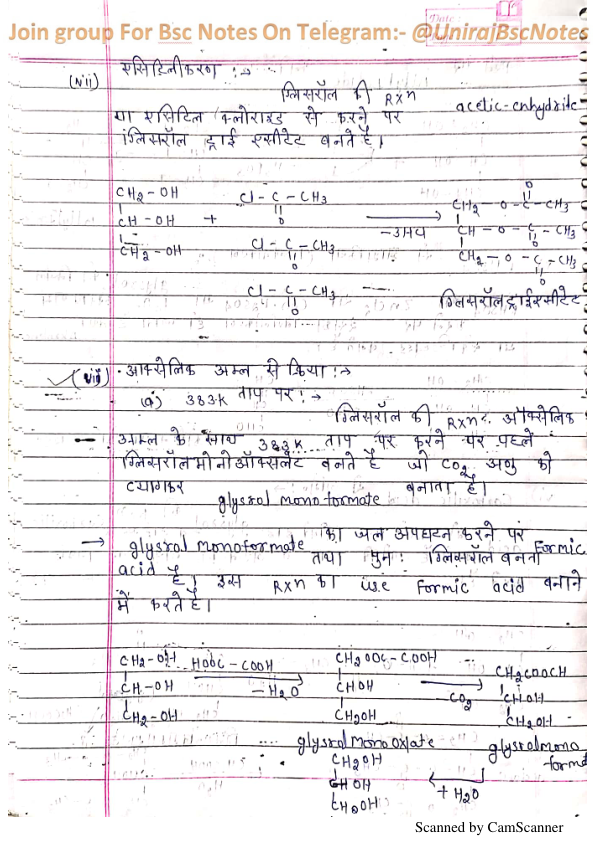 Join group For Bsc Notes On Telegram:- @UnirajBscNotes
Date
(vii) एसिटिलीकरण :→
ग्लिसरॉल की Rxn acetic-enhydride
या एसिटिल क्लोराइड से करने पर
ग्लिसरॉल ट्राई एसीटेट बनते है।
CH2-OH Cl-C-CH3 CH2-O-C-CH3
O O
CH-OH + -3HCl CH-O-C-CH3
O
CH2-OH Cl-C-CH3 CH2-O-C-CH3
O O
Cl-C-CH3 ग्लिसरॉलट्राईएसीटेट
O
(viii) ऑक्सेलिक अम्ल से क्रिया :→
(a) 383K ताप पर :→
ग्लिसरॉल की Rxn ऑक्सेलिक
अम्ल के साथ 383K ताप पर करने पर पहले
ग्लिसरॉल मोनोऑक्सलेट बनते है जो CO2 अणु को
त्यागकर glysrol mono formate बनाता है।
→ glysrol monoformate का जल अपघटन करने पर Formic
acid तथा पुनः ग्लिसरॉल बनता
है। इस Rxn का use Formic acid बनाने
में करते है।
CH2-OH HOOC-COOH CH2OOC-COOH CH2COOCH
CH-OH -H2O CHOH CO2 CHOH
CH2-OH CH2OH CH2OH
glysrolmonooxlate glysrolmono
formate
CH2OH
CHOH +H2O
CH2OH
Scanned by CamScanner